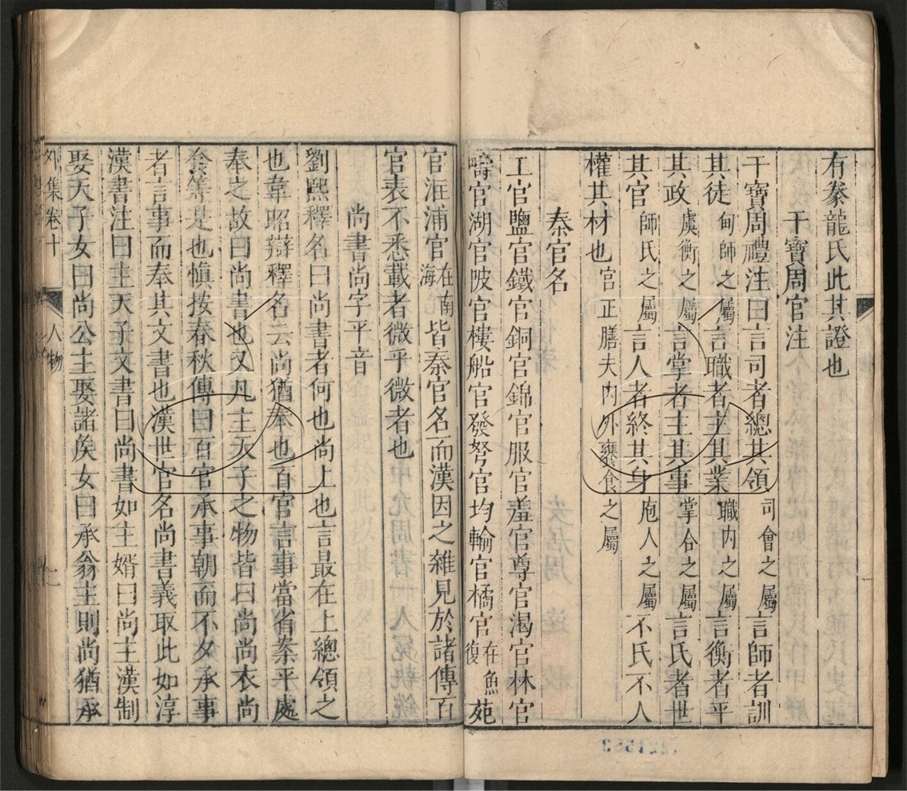 有豢龍氏此其證也
干寶周官注
干寶周禮注曰言司者總其領司會之屬言師者訓
其徒甸師之屬言職者主其業職內之屬言衡者平
其政虞衡之屬言掌者主其事掌令之屬言氏者世
其官師氏之屬言人者終其身庖人之屬不氏不人
權其材也宮正膳夫內外饔食之屬
秦官名
工官鹽官鐵官銅官錦官服官羞官尊官渴官林官
疇官湖官陂官樓船官發弩官均輸官橘官在魚復苑
官洭浦官在南海皆秦官名而漢因之雜見於諸傳百
官表不悉載者微乎微者也
尚書尚字平音
劉熙釋名曰尚書者何也尚上也言最在上總領之
也韋昭辯釋名云尚猶奉也百官言事當省案平處
奉之故曰尚書也又凡主天子之物皆曰尚尚衣尚
食等是也愼按春秋傳曰百官承事朝而不夕承事
者言事而奉其文書也漢世官名尚書義取此如淳
漢書注曰主天子文書曰尚書如主婿曰尚主漢制
娶天子女曰尚公主娶諸侯女曰承翁主則尚猶承
外集卷十
人物